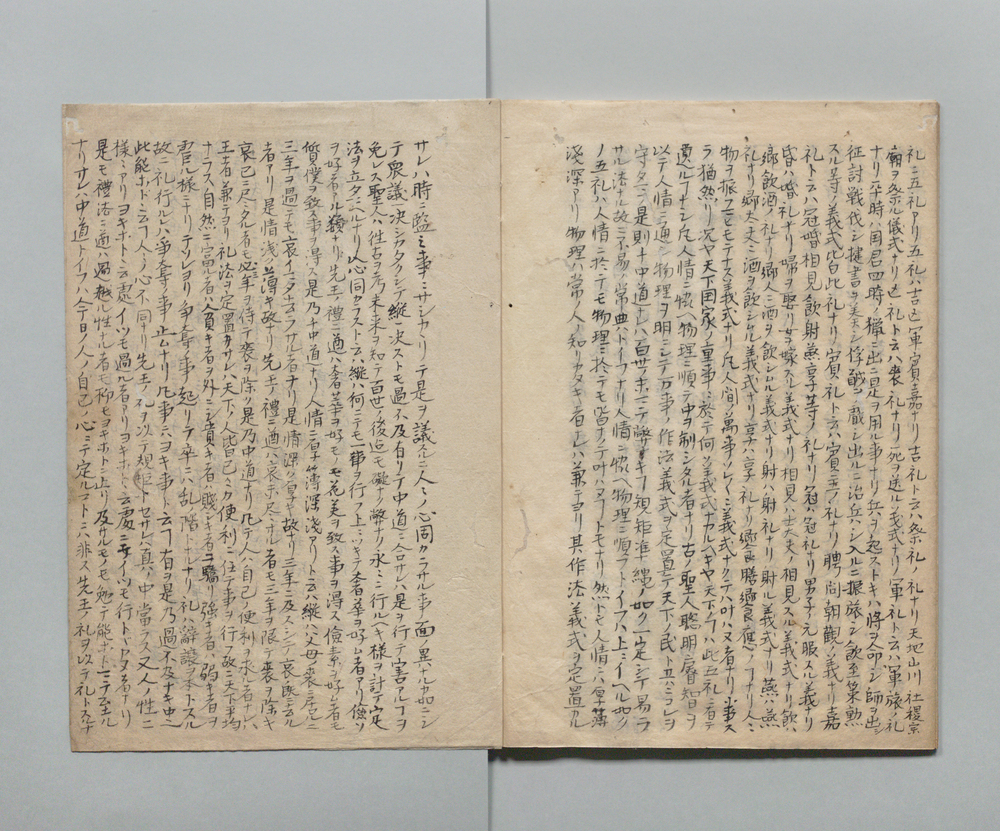 礼ニ五礼アリ五礼ハ吉凶軍賓嘉ナリ吉礼トハ祭礼ノ礼ナリ天地山川社稷宗
廟ヲ祭ル儀式ナリ凶礼トハ喪ノ礼ナリ死ヲ送ル義式ナリ軍礼トハ軍旅ノ礼
ナリ平時ハ国君四時ノ猟ニ出ニ是ヲ用ル事ナリ兵ヲ起ストキハ将ヲ命シ師ヲ出シ
征討戦伐シ捷書ヲ奏シ俘馘ヲ献シ出ルニ治兵シ入ルニ振旅シ飲至策勲
スル等ノ義式比皆此礼ナリ賓礼トハ賓主ノ礼ナリ聘問朝覲ノ義ナリ嘉
礼トハ冠婚相見飲射燕享等ノ礼ナリ冠ハ冠礼ナリ男子ノ元服スル義式ナリ
昏ハ婚礼ナリ婦ヲ娶リ女ヲ嫁スル義式ナリ相見ハ士大夫ノ相見スル義式ナリ飲ハ
郷飲酒ノ礼ナリ郷人ニ酒ヲ飲シムル義式ナリ射ハ射礼ナリ射ル義式ナリ燕ハ燕
礼ナリ卿大夫ニ酒ヲ飲シムル義式ナリ享ハ享礼ナリ饗膳饗食應ノ事ナリ人ニ
物ヲ振フニモモテナス義式ナリ凡人間ノ萬事ソレ〳〵ニ義式ナクテハ叶ハヌ者ナリ小事ス
ラ猶然リ況ヤ天下国家ノ重事ニ於テ何ソ義式ナカルヘキヤ天下ノ事ハ此五礼ニ
遺ルヿナシ凡人情ニ愜ヘ物理ニ順テ中ヲ制シタル者ナリ古ノ聖人聰明睿知ヲ
以テ人情ニ通シ物理ヲ明ニシテ万事ノ作法義式ヲ定置テ天下ノ民ト共ニコレヲ
守タマフ是則チ中道ナリ百世ノホニテ弊ナキヿ規矩準縄ノ如ク一定シテ易ラ
サル法ナル故ニ不易ノ常典ハトイフナリ人情ニ愜ヘ物理ニ順フトイフハ上ニイヘル如ク
ノ五礼ハ人情ニ於テモ物理ニ於テモ皆ナクテ叶ハヌヿトモナリ然トモ人情ニハ厚薄
浅深アリ物理ハ常人ノ知リカタキ者ナレハ兼テヨリ其作法義式ヲ定置カル
サレハ時ニ臨ミ事ニサシカヽリテ是ヲ議スルニ人々ノ心同カラサル事面ノ異ナルカ如ニシ
テ衆議ノ決シカタクシテ縦ヒ決ストモ過不及有リテ中道ニ合サレハ是ヲ行テ害アルヿヲ
免レス聖人ハ往古ヲ考未来ヲ知テ百世ノ後迄モ礙ナク弊ナク永ニ行ルヘキ様ヲ討ゲ定
法ヲ立タルナリ人心同カラストハ縦ヘハ何ニテモ一事ヲ行フ上ニツキテ奢華ヲ好ム者アリ儉ソ
ヲ好者アル類ナリ先王ノ禮ニ適ハ奢華ヲ好ノモ花美ヲ致ス事ヲ得ス儉素ヲ好ム者モ
質僕ヲ致ス事ヲ得ス是乃チ中道ナリ人情ニ厚薄深浅アリト云ハ縦ハ父母ノ喪ニ居ルニ
三年ヲ過テモ哀イマタ尽ラル者アリ是情深ク厚キ故ナリ三年ニ及スシテ哀懈ニナル
者アリ是情浅ク薄キ故ナリ先王ノ禮ニ適ハ哀未尽サル者モ三年ヲ限テ喪ヲ除キ
哀已ニ尽タル者モ必三年ヲ待テ喪ヲ除ク是乃中道ナリ凡テ人ハ自己ノ便利ヲ求ル者ナレハ
王者兼テヨリ礼法ヲ定置タマハサレハ天下ノ人皆己々カ便利ニ任テ事ヲ行フ故ニ天下平均
ナラス自然ニ富ル者ハ貧キ者ヲ外ニシ貴キ者ハ賤キ者ニ驕リ強キ者ハ弱キ者ヲ
虐ル族ニナリテソレヨリ争奪ノ事起リテ卒ニハ乱ノ階トナルナリ礼ハ辭譲ヲ本トスル
故ニ礼行ルレハ争奪ノ事止ムナリ凡事ニヨキホトト云ヿ有ヲ是乃過不及ナキ中也
此能ホトト云ヿ人々ノ心不同ナリ先王ノ礼ヲ以テ規矩トセサレハ真ノ中ニ當ラス又人ノ性ニ
様々アリヨキホトト云處イツモ過ル者アリヨキホトト云處ニテイツモ行トヽカヌ者アリ
是モ禮法ニ適ハ過越ル性ノ者モ抑テヨキホトニ止リ及サルモノモ勉テ能ホトニテ至ル
ナリサレハ中道トイフハ今日ノ人ノ自己ノ心ニテ定ルコトニハ非ス先王ノ礼ヲ以テ礼トスルナ